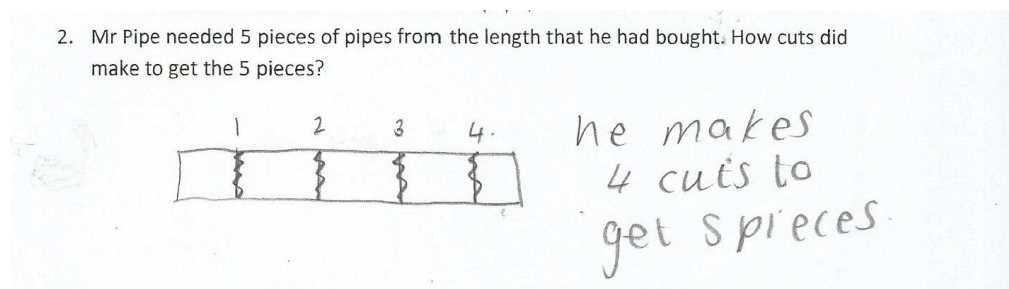 2. Mr Pipe needed 5 pieces of pipes from the length that he had bought. How cuts did
make to get the 5 pieces?
1 2 3 4.
he makes
4 cuts to
get 5 pieces.